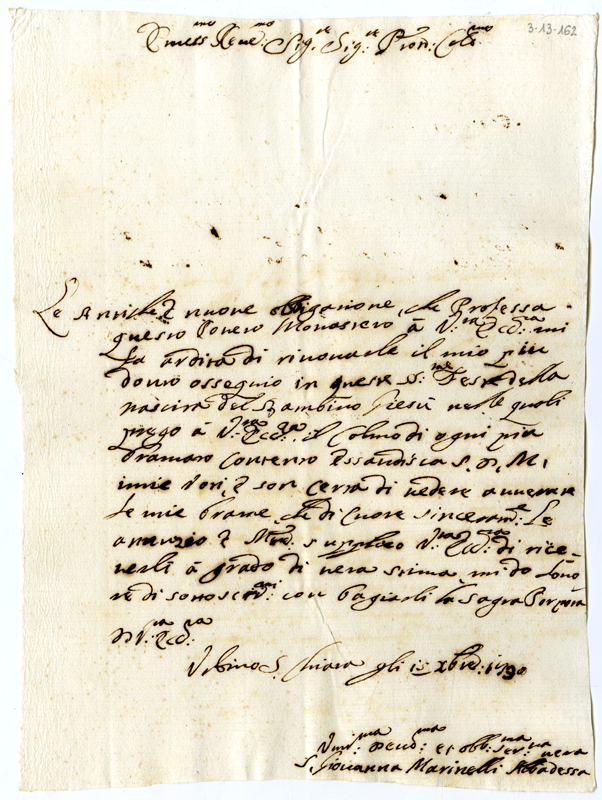 3-13-162
Emess. Reve: mo Sig.re Sig.re Pron: Col.mo
Le Antiche, e nuove obligazione, che Professa
questo Povero Monastero à V.ra Ecc.za mi
fa ardita di rinovarle il mio più
douto ossequio in queste S.me Feste della
nascita del Bambino Giesù nelle quali
prego à V.ra Ecc.za il Colmo di ogni più
bramato contento Essaudisca S. D. M. i
i mie voti, e son certa di vedere avverare
le mie brame, che di Cuore sinceram.te Le
annunzio e supplico V.ra Ecc.za di rice-
verli à grado di vera stima, mi do l'ono
re di sottoscriv. con bagiarli la Sagra Porpora
D V.ra Ecc.za
Urbino S. Chiara gli 15 Xbre: 1790
Um.ma Deuo.ma et obb.ma Ser.va vera
S. Giovanna Marinelli Abbadessa